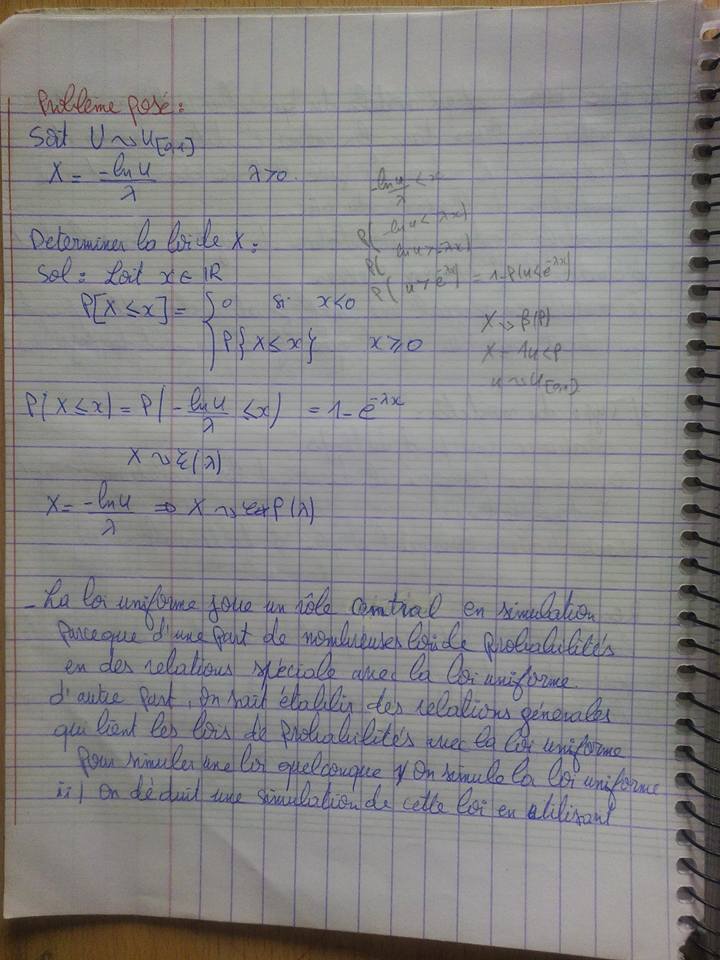 Problème posé :
Soit U ~ U[0,1]
X = -ln U / λ    λ > 0
-ln u / λ < x
P( -ln u < λx )
P( ln u > -λx )
P( u > e^{-λx} ) = 1 - P( u < e^{-λx} )
X ~ β(P)
X = 1 u < P
u ~ U[0,1]
Determiner la loi de X :
Sol : Soit x ∈ IR
P[X ≤ x] = { 0    si    x < 0
{ P{X ≤ x}    x ≥ 0
P(X ≤ x) = P( -ln U / λ ≤ x ) = 1 - e^{-λx}
X ~ ξ(λ)
X = -ln U / λ ⇒ X ~ exp(λ)
- La loi uniforme joue un rôle central en simulation
parceque d'une part de nombreuses loi de probabilités
en des relations spéciale avec la loi uniforme
d'autre part, on sait établir des relations générales
qui lient les lois de probabilités avec la loi uniforme
pour simuler une loi quelconque i/ On simule la loi uniforme
ii/ on déduit une simulation de cette loi en utilisant